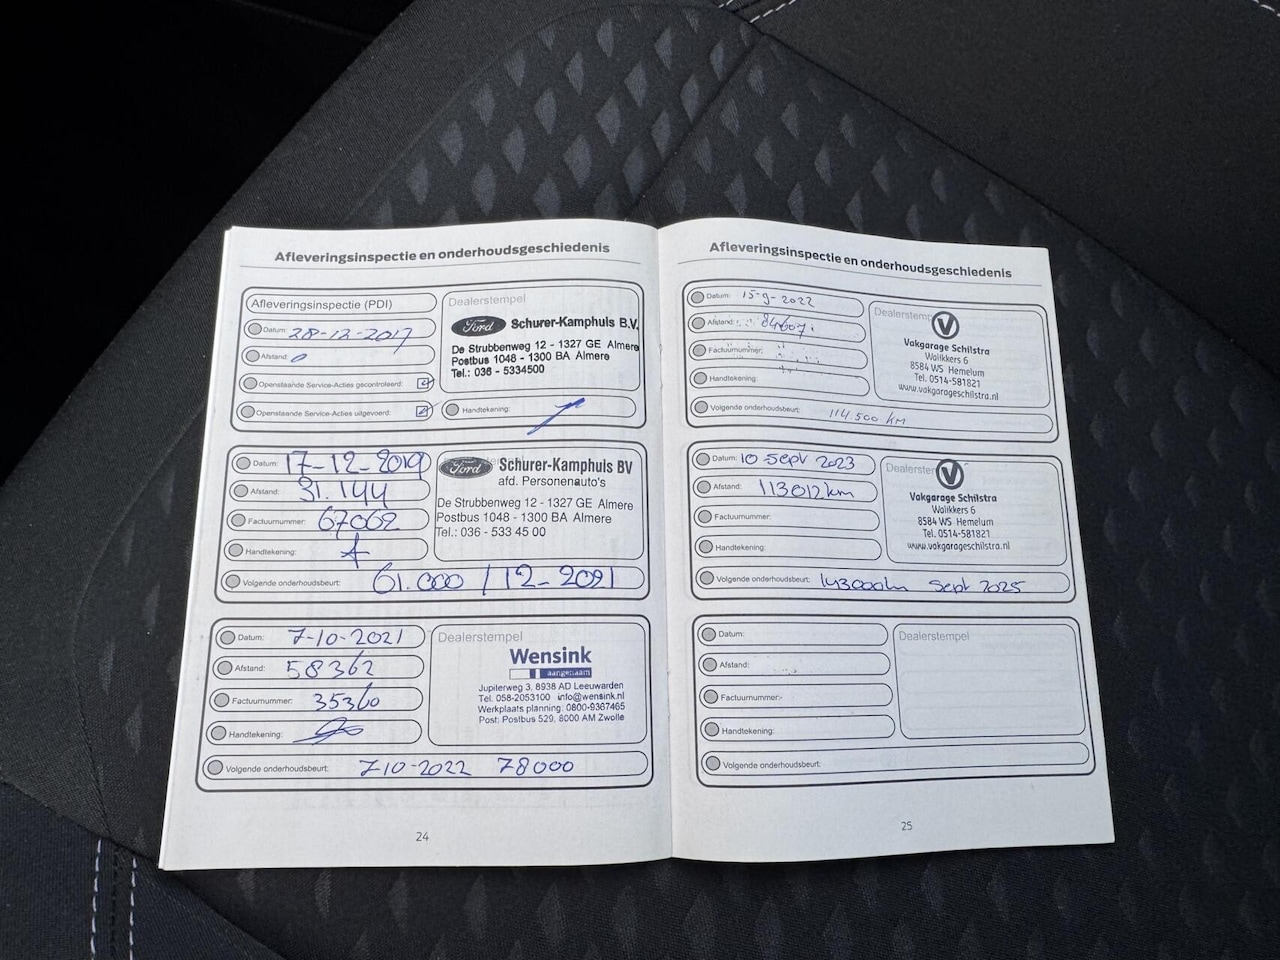 Afleveringsinspectie en onderhoudsgeschiedenis
Afleveringsinspectie (PDI)
Datum: 28-12-2017
Afstand: 0
Openstaande Service-Acties gecontroleerd:
Openstaande Service-Acties uitgevoerd:
Dealerstempel
Ford Schurer-Kamphuis B.V.
De Strubbenweg 12 - 1327 GE Almere
Postbus 1048 - 1300 BA Almere
Tel.: 036 - 5334500
Handtekening:
Datum: 17-12-2019
Afstand: 31.144
Factuurnummer: 67062
Handtekening:
Ford Schurer-Kamphuis BV
afd. Personenauto's
De Strubbenweg 12 - 1327 GE Almere
Postbus 1048 - 1300 BA Almere
Tel.: 036 - 533 45 00
Volgende onderhoudsbeurt: 61.000 / 12-2021
Datum: 7-10-2021
Afstand: 58362
Factuurnummer: 35360
Handtekening:
Dealerstempel
Wensink
aangenaam
Jupiterweg 3, 8938 AD Leeuwarden
Tel. 058-2053100 info@wensink.nl
Werkplaats planning: 0800-9367465
Post: Postbus 529, 8000 AM Zwolle
Volgende onderhoudsbeurt: 7-10-2022 78000
24
Afleveringsinspectie en onderhoudsgeschiedenis
Datum: 15-9-2022
Afstand: 84607
Factuurnummer:
Handtekening:
Dealerstemp
Vakgarage Schilstra
Walikkers 6
8584 WS Hemelum
Tel. 0514-581821
www.vakgarageschilstra.nl
Volgende onderhoudsbeurt: 114.500 KM
Datum: 10 Sept 2023
Afstand: 113012km
Factuurnummer:
Handtekening:
Dealerster
Vakgarage Schilstra
Walikkers 6
8584 WS Hemelum
Tel. 0514-581821
www.vakgarageschilstra.nl
Volgende onderhoudsbeurt: 143000km Sept 2025
Datum:
Afstand:
Factuurnummer:
Handtekening:
Dealerstempel
Volgende onderhoudsbeurt:
25